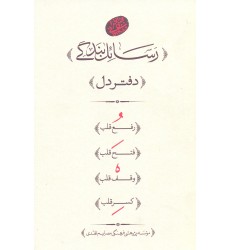 رسائل بندگی
﴿دفتر دل﴾
﴿رفع قلب﴾
﴿فتح قلب﴾
﴿وقف قلب﴾
﴿کسر قلب﴾